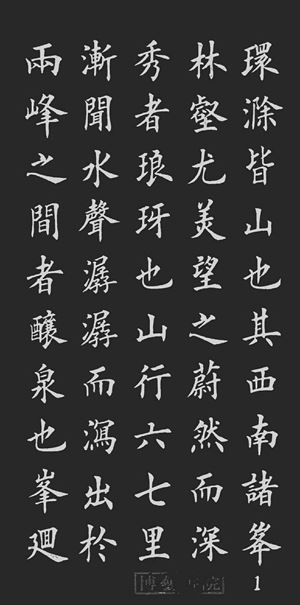 環滁皆山也其西南諸峯
林壑尤美望之蔚然而深
秀者琅玡也山行六七里
漸聞水聲潺潺而瀉出於
兩峰之間者釀泉也峯廻
1